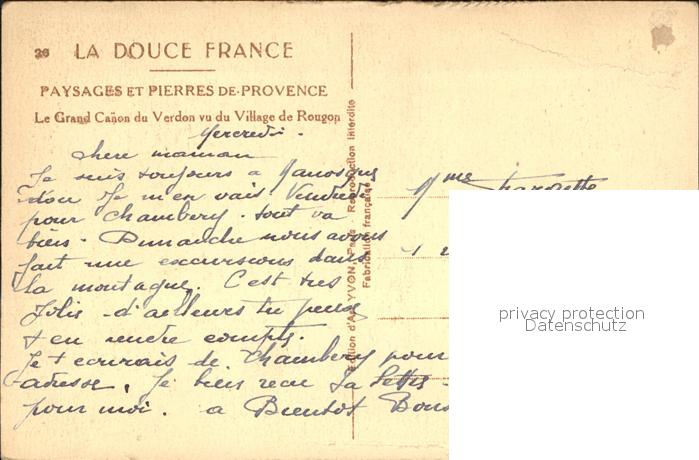 26 LA DOUCE FRANCE
PAYSAGES ET PIERRES DE PROVENCE
Le Grand Cañon du Verdon vu du Village de Rougon
Mercredi.
chere maman
Je suis toujours a Manosque
d'ou Je m'en vais Vendredi
pour Chambery. tout va
bien. Dimanche nous avons
fait une excursions dans
la montagne. C'est tres
Jolis - d'ailleurs tu peux
t en rendre compte.
Je t ecrirais de Chambery pour
adresse. Je bien recu Ta lettre
pour moi. a Bientot Bons
Mme
Edition d'Art YVON, Paris - Reproduction interdite
Fabrication française
privacy protection
Datenschutz